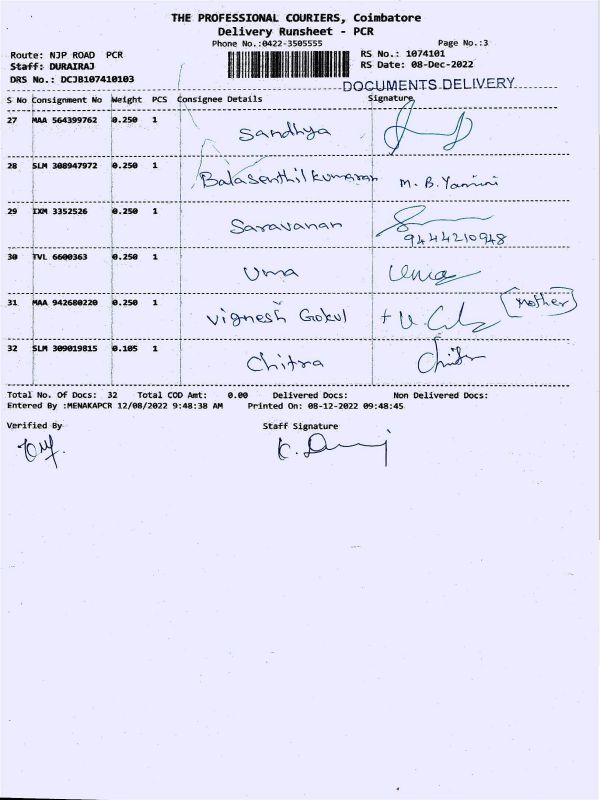 THE PROFESSIONAL COURIERS, Coimbatore
Delivery Runsheet - PCR
Phone No.:0422-3505555 Page No.:3
Route: NJP ROAD PCR RS No.: 1074101
Staff: DURAIRAJ RS Date: 08-Dec-2022
DRS No.: DCJB107410103
DOCUMENTS DELIVERY
S No Consignment No Weight PCS Consignee Details Signature
27 MAA 564399762 0.250 1 Sandhya
28 SLM 308947972 0.250 1 Balasenthilkumaran M. B. Yamini
29 IXM 3352526 0.250 1 Saravanan
9444210948
30 TVL 6600363 0.250 1 Uma Uma
31 MAA 942680220 0.250 1 Vignesh Gokul (Mother)
32 SLM 309019815 0.105 1 Chitra Chitra
Total No. Of Docs: 32 Total COD Amt: 0.00 Delivered Docs: Non Delivered Docs:
Entered By :MENAKAPCR 12/08/2022 9:48:38 AM Printed On: 08-12-2022 09:48:45
Verified By Staff Signature